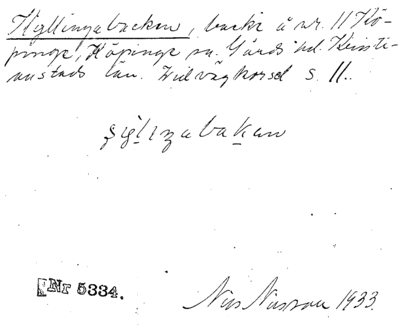 Hyllingabacken, backe å nr. 11 Kö-
pinge, Köpinge sn. Gärds hd. Kristi-
anstads län. Vid vägkorset s. 11.
Nr 5334.
Nils Nilsson 1933.